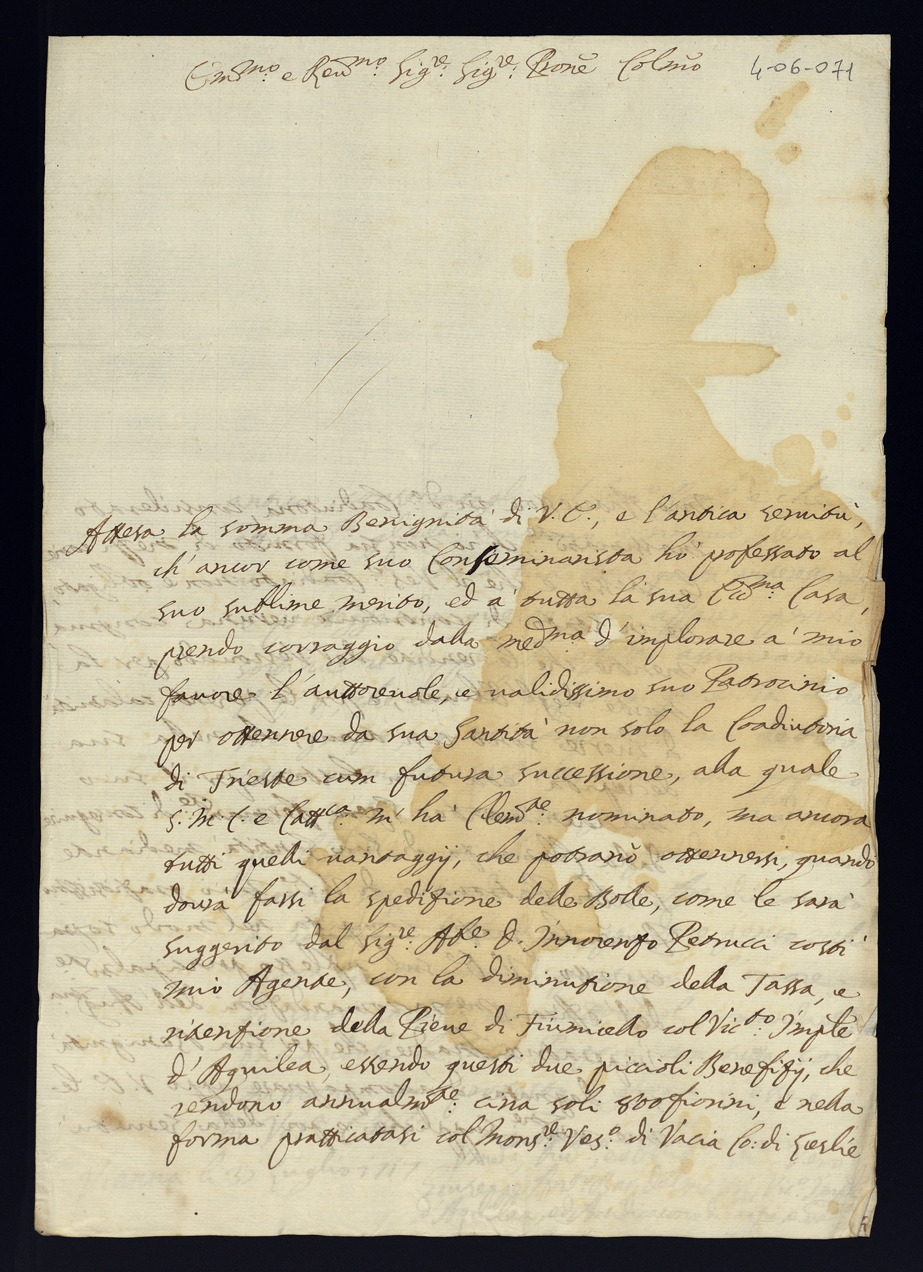 Em̃mo e Reu̇mo Sigre: Sigre: Prone Colmo
4-06-071
Attesa la somma Benignità di V. E., e l'antica seruitù,
ch'ancor come suo Conseminarista hò professato al
suo sublime merito, ed à tutta la sua Eccma: Casa,
prendo corraggio dalla medma d'implorare a' mio
fauore l'auttoreuole, e ualidissimo suo Patrocinio
per ottennere da sua Santità non solo la Coadiutoria
di Trieste cum futura successione, alla quale
S: M: C: e Cattca m'hà Clemte: nominato, ma ancora
tutti quelli uantaggij, che potranõ ottennersi, quando
dourà farsi la spedizione delle Bolle, come le sarà
suggerito dal Sigre Abe D. Innorenzo Petrucci costì
mio Agente, con la diminutione della Tassa, e
ritentione della Pieue di Fiumicello col Victo: Imple
d'Aquilea, essendo questi due piccioli Benefizij, che
rendono annualmte: circa soli 800 fiorini, e nella
forma pratticatasi col Monsre Veso: di Vacia Co: di